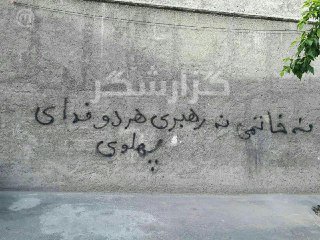 گزارشگر
نه خاتمی نه رهبری هر دو فدای
پهلوی